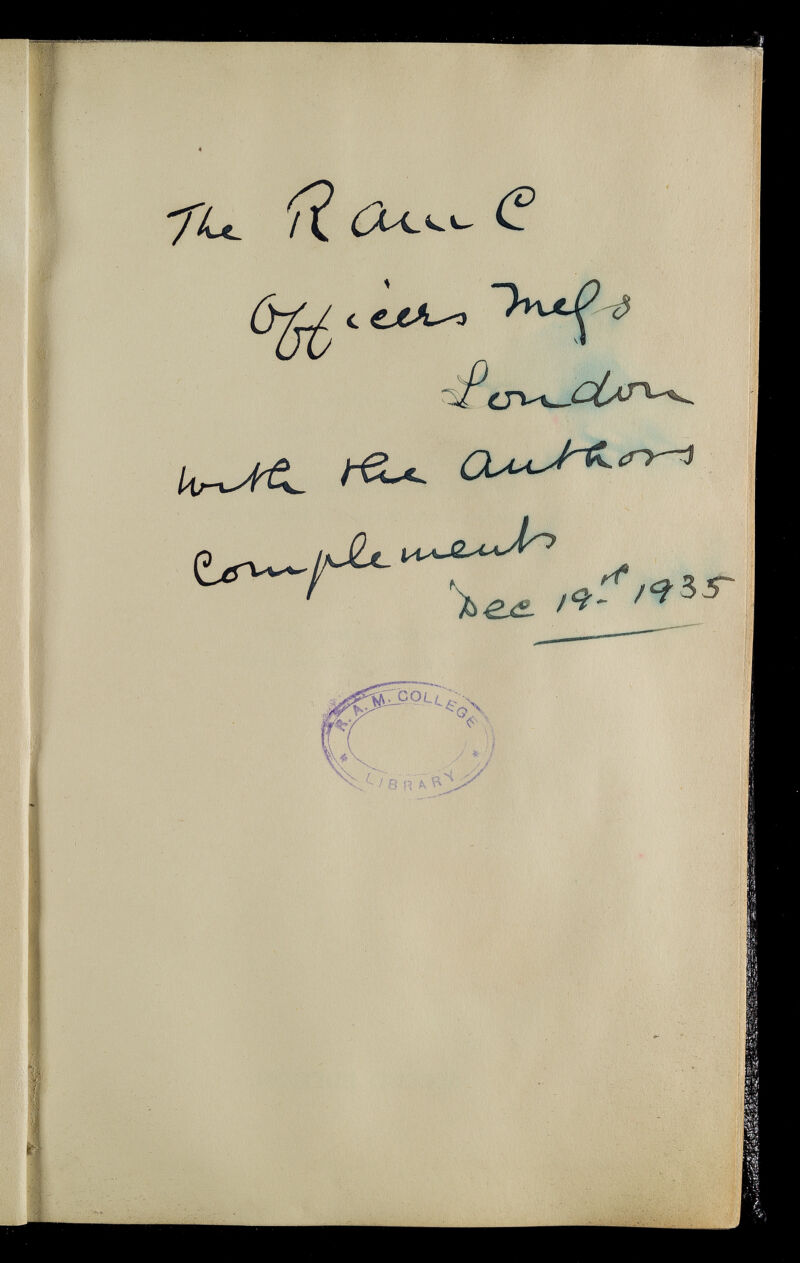 The RAMC
Officers Meſs
London
with the authors
Complements
Dec 19th 1935
R. A. M. COLLEGE
* LIBRARY *